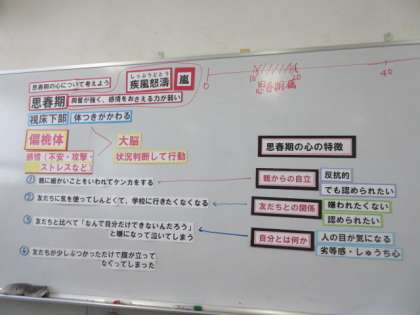 思春期の心について考えよう
しっぷうどとう
疾風怒濤
嵐
0
10
18
思春期
40
思春期
興奮が強く、感情をおさえる力が弱い
視床下部
体つきがかわる
偏桃体
感情(不安・攻撃・
ストレスなど
大脳
状況判断して行動
① 親に細かいことをいわれてケンカをする
② 友だちに気を使ってしんどくて、学校に行きたくなくなる
③ 友だちと比べて「なんで自分だけできないんだろう」
と嫌になって泣いてしまう
④ 友だちが少しぶつかっただけで腹が立って
なぐってしまった
思春期の心の特徴
親からの自立
反抗的
でも認められたい
友だちとの関係
嫌われたくない
認められたい
自分とは何か
人の目が気になる
劣等感・しゅうち心